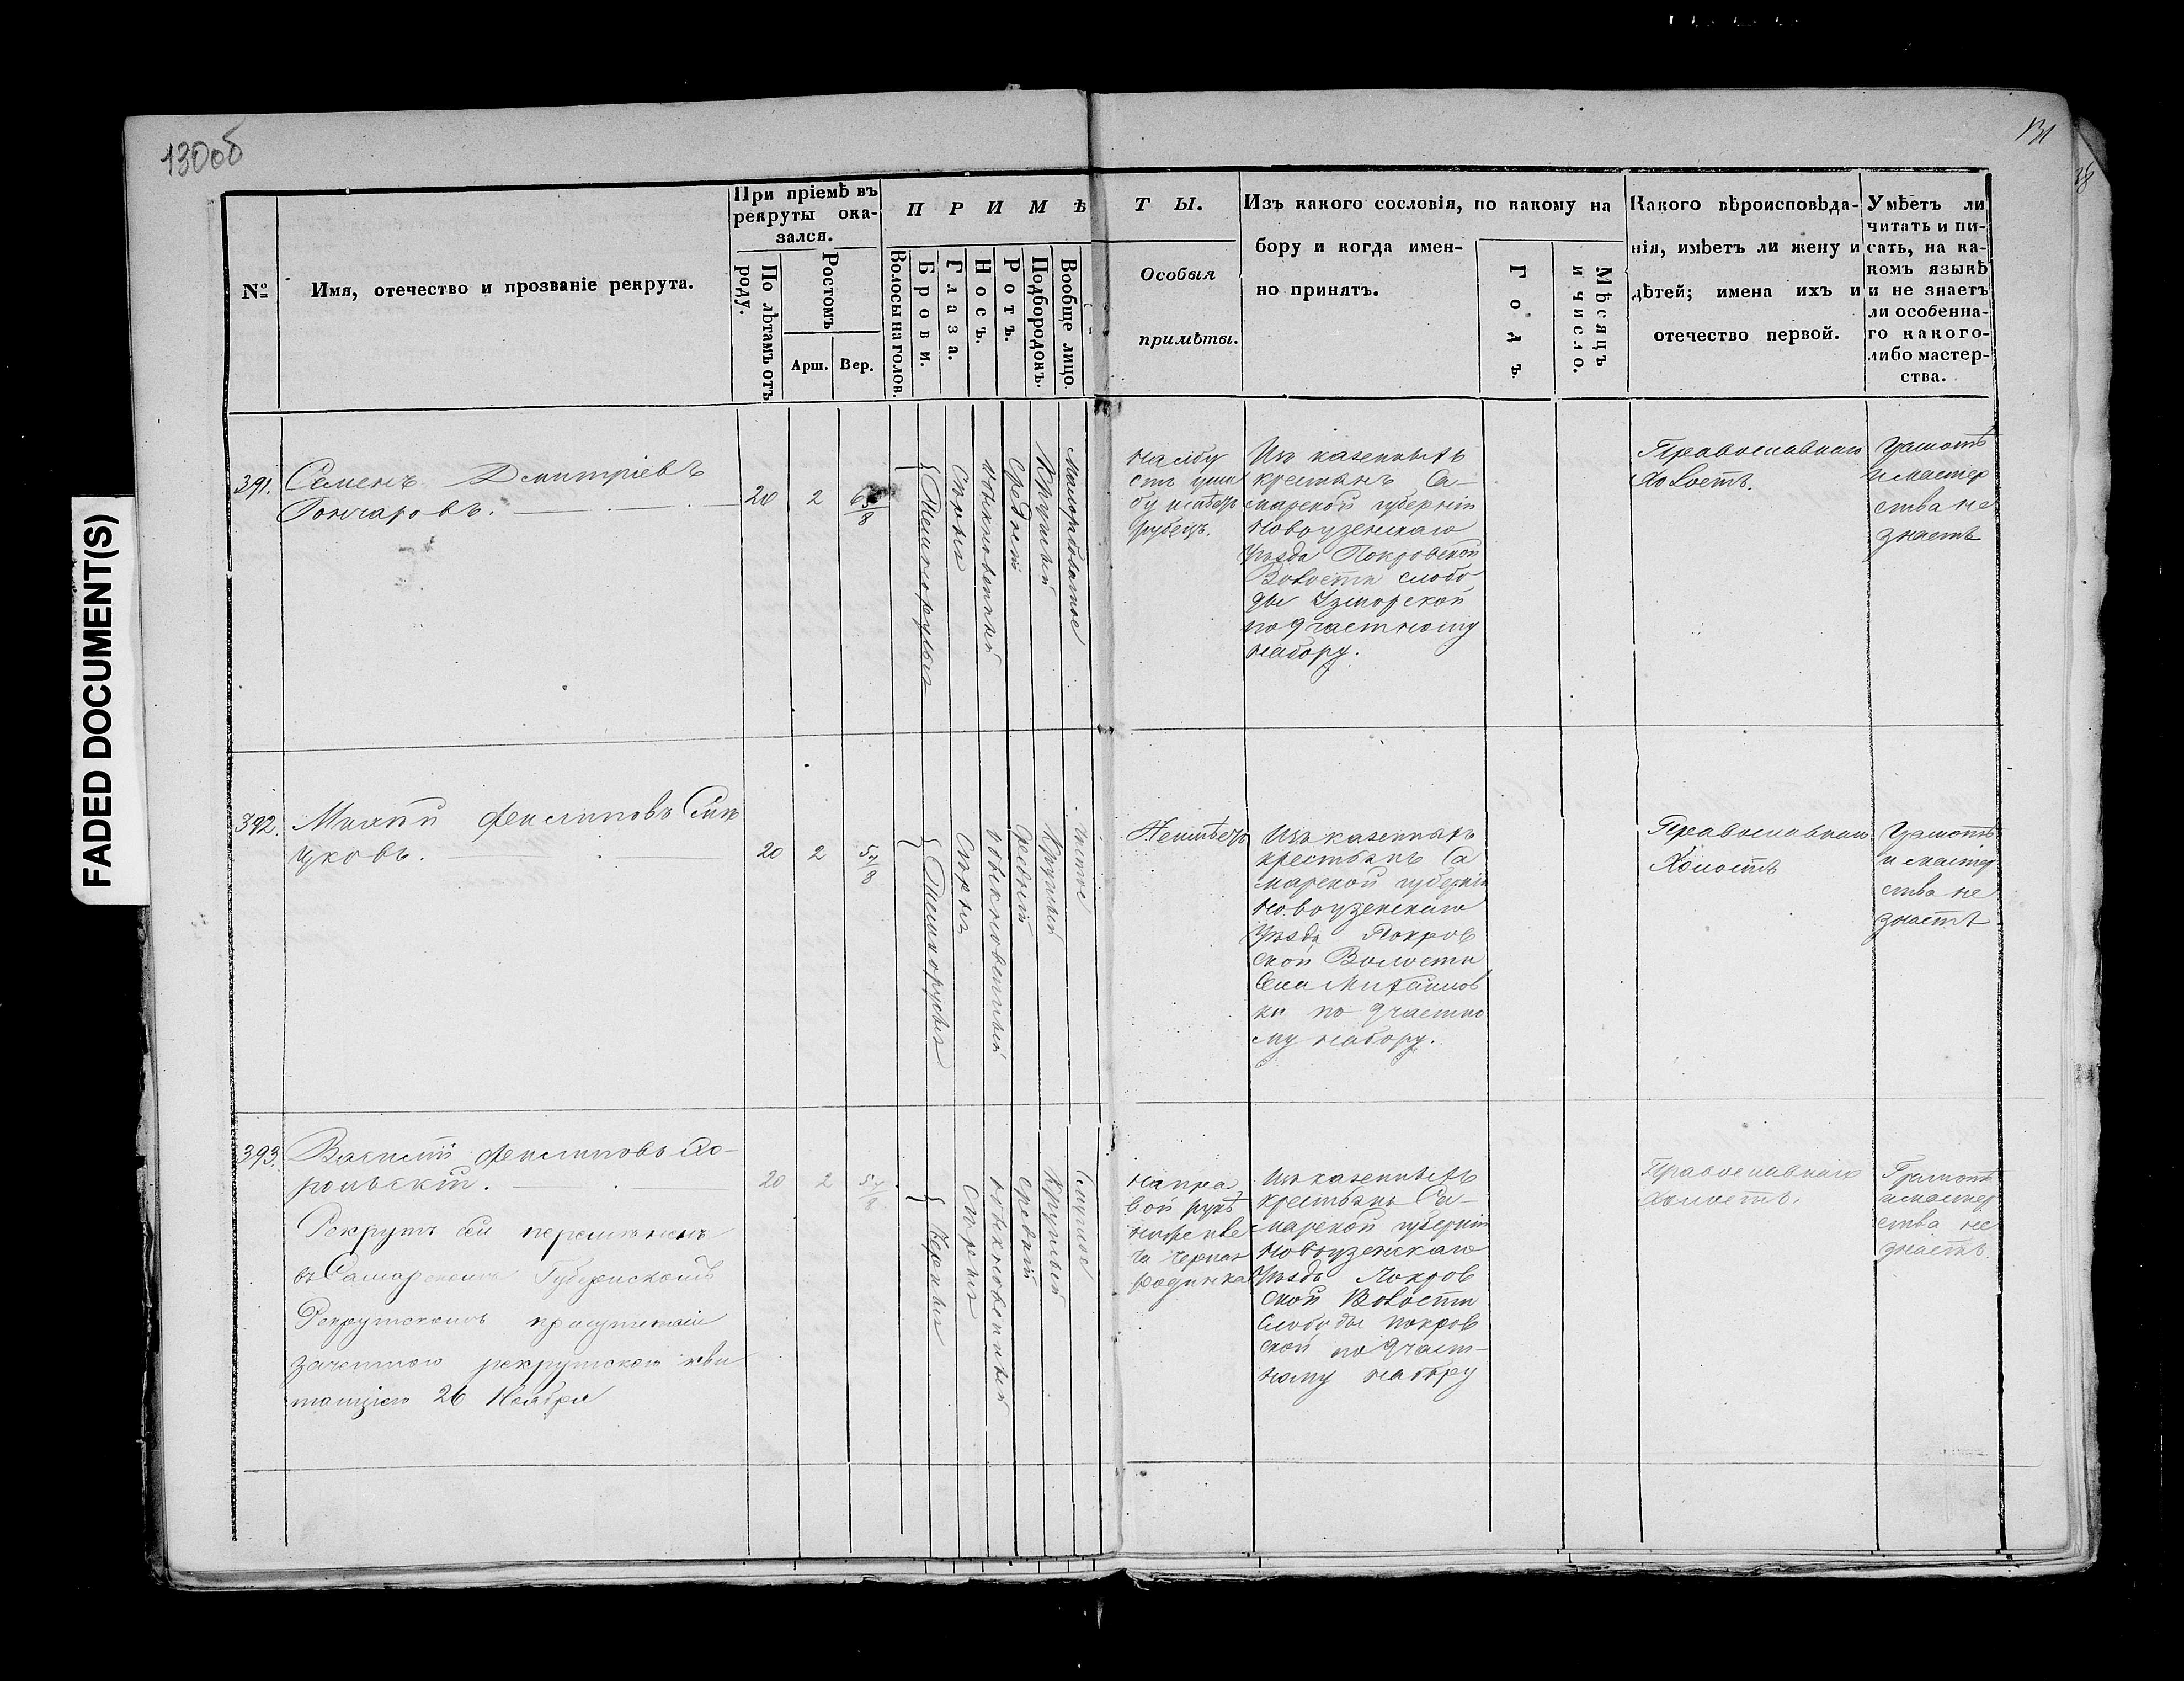 130об
131
FADED DOCUMENT(S)
№
Имя, отечество и прозваніе рекрута.
При пріемѣ въ
рекруты ока-
зался.
По лѣтамъ отъ
роду.
Ростомъ
Арш.
Вер.
ПРИМѢ
ТЫ.
Волосы на голов.
Брови.
Глаза.
Носъ.
Ротъ.
Подбородокъ.
Вообще лицо.
Особыя
примѣты.
Изъ какого сословія, по какому на
бору и когда имен-
но принятъ.
Годъ.
Мѣсяцъ
и число.
Какого вѣроисповѣда-
нія, имѣетъ ли жену и
дѣтей; имена ихъ и
отечество первой.
Умѣетъ ли
читать и пи-
сать, на ка-
комъ языкѣ
и не знаетъ
ли особенна-
го какого-
либо мастер-
ства.
391.
Семенъ Дмитріевъ
Гончаровъ.
20
2
6 5/8
Темнорусыя
Сѣрыя
обыкновенный
Средній
Круглый
На лбу
рубецъ.
Изъ казенныхъ
крестьянъ Са-
марской губерніи
Новоузенскаго
Уѣзда Покровской
Волости слобо
ды Узморской
по 9 частному
набору.
Православнаго
Холостъ.
Грамотѣ
и мастер
ства не
знаетъ
392.
Филиповъ
20
2
5 7/8
Темнорусыя
Сѣрыя
обыкновенный
Средній
Круглый
Чистое
Изъ казенныхъ
крестьянъ Са
марской губерніи
Новоузенскаго
Уѣзда Покров
ской Волости
Села Михайлов
ки по 9 частно
му набору.
Православнаго
Холостъ
Грамотѣ
и мастер
ства не
знаетъ
393.
Василій Филиповъ Хо-
рольскій.
20
2
Рекрутъ сей
въ Самарскомъ Губернскомъ
Рекрутскомъ присутствіи
зачетною рекрутскою кви
танціею 26 Ноября
Черныя
Сѣрыя
обыкновенный
Средній
Круглый
Смуглое
На пра
вой рукѣ
ниже пле
ча черная
родинка
Изъ казенныхъ
крестьянъ Са-
марской губерніи
Новоузенскаго
Уѣзда Покров
ской Волости
Слободы Покров
ской по 9 част-
ному набору
Православнаго
Холостъ.
Грамотѣ
и мастер
ства не
знаетъ.